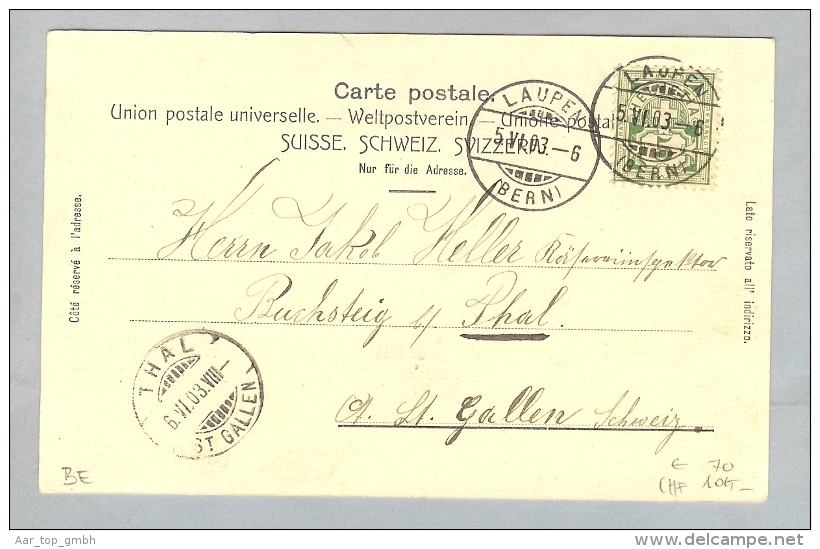 Carte postale.
Union postale universelle. — Weltpostverein. — Unione postal
SUISSE. SCHWEIZ. SVIZZERA.
Nur für die Adresse.
LAUPEN
5.VI.03.–6
(BERN)
LAUPEN
5.VI.03.–6
(BERN)
Côté réservé à l'adresse.
Lato riservato all' indirizzo.
Herrn Jakob Heller Käsereiinspektor
Buchsteig b/ Thal.
Ct. St. Gallen Schweiz.
THAL
6.VI.03.VIII–
ST GALLEN
BE
€ 70
CHF
Aar_top_gmbh
www.delcampe.net